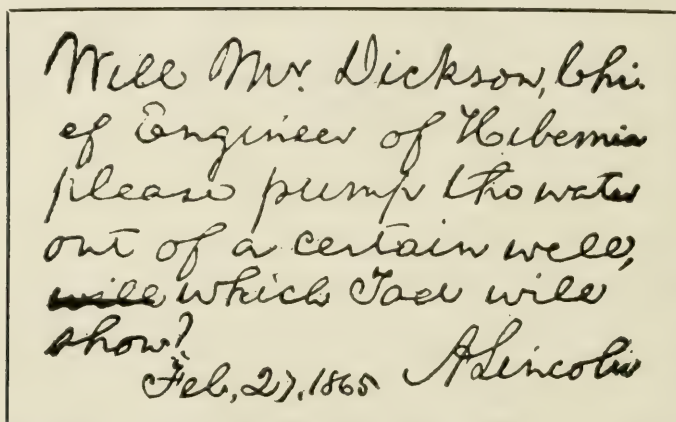 Will Mr. Dickson, Chi-
ef Engineer of Hibernia
please pump the water
out of a certain well,
will which Tad will
show?
Feb. 27. 1865 A Lincoln